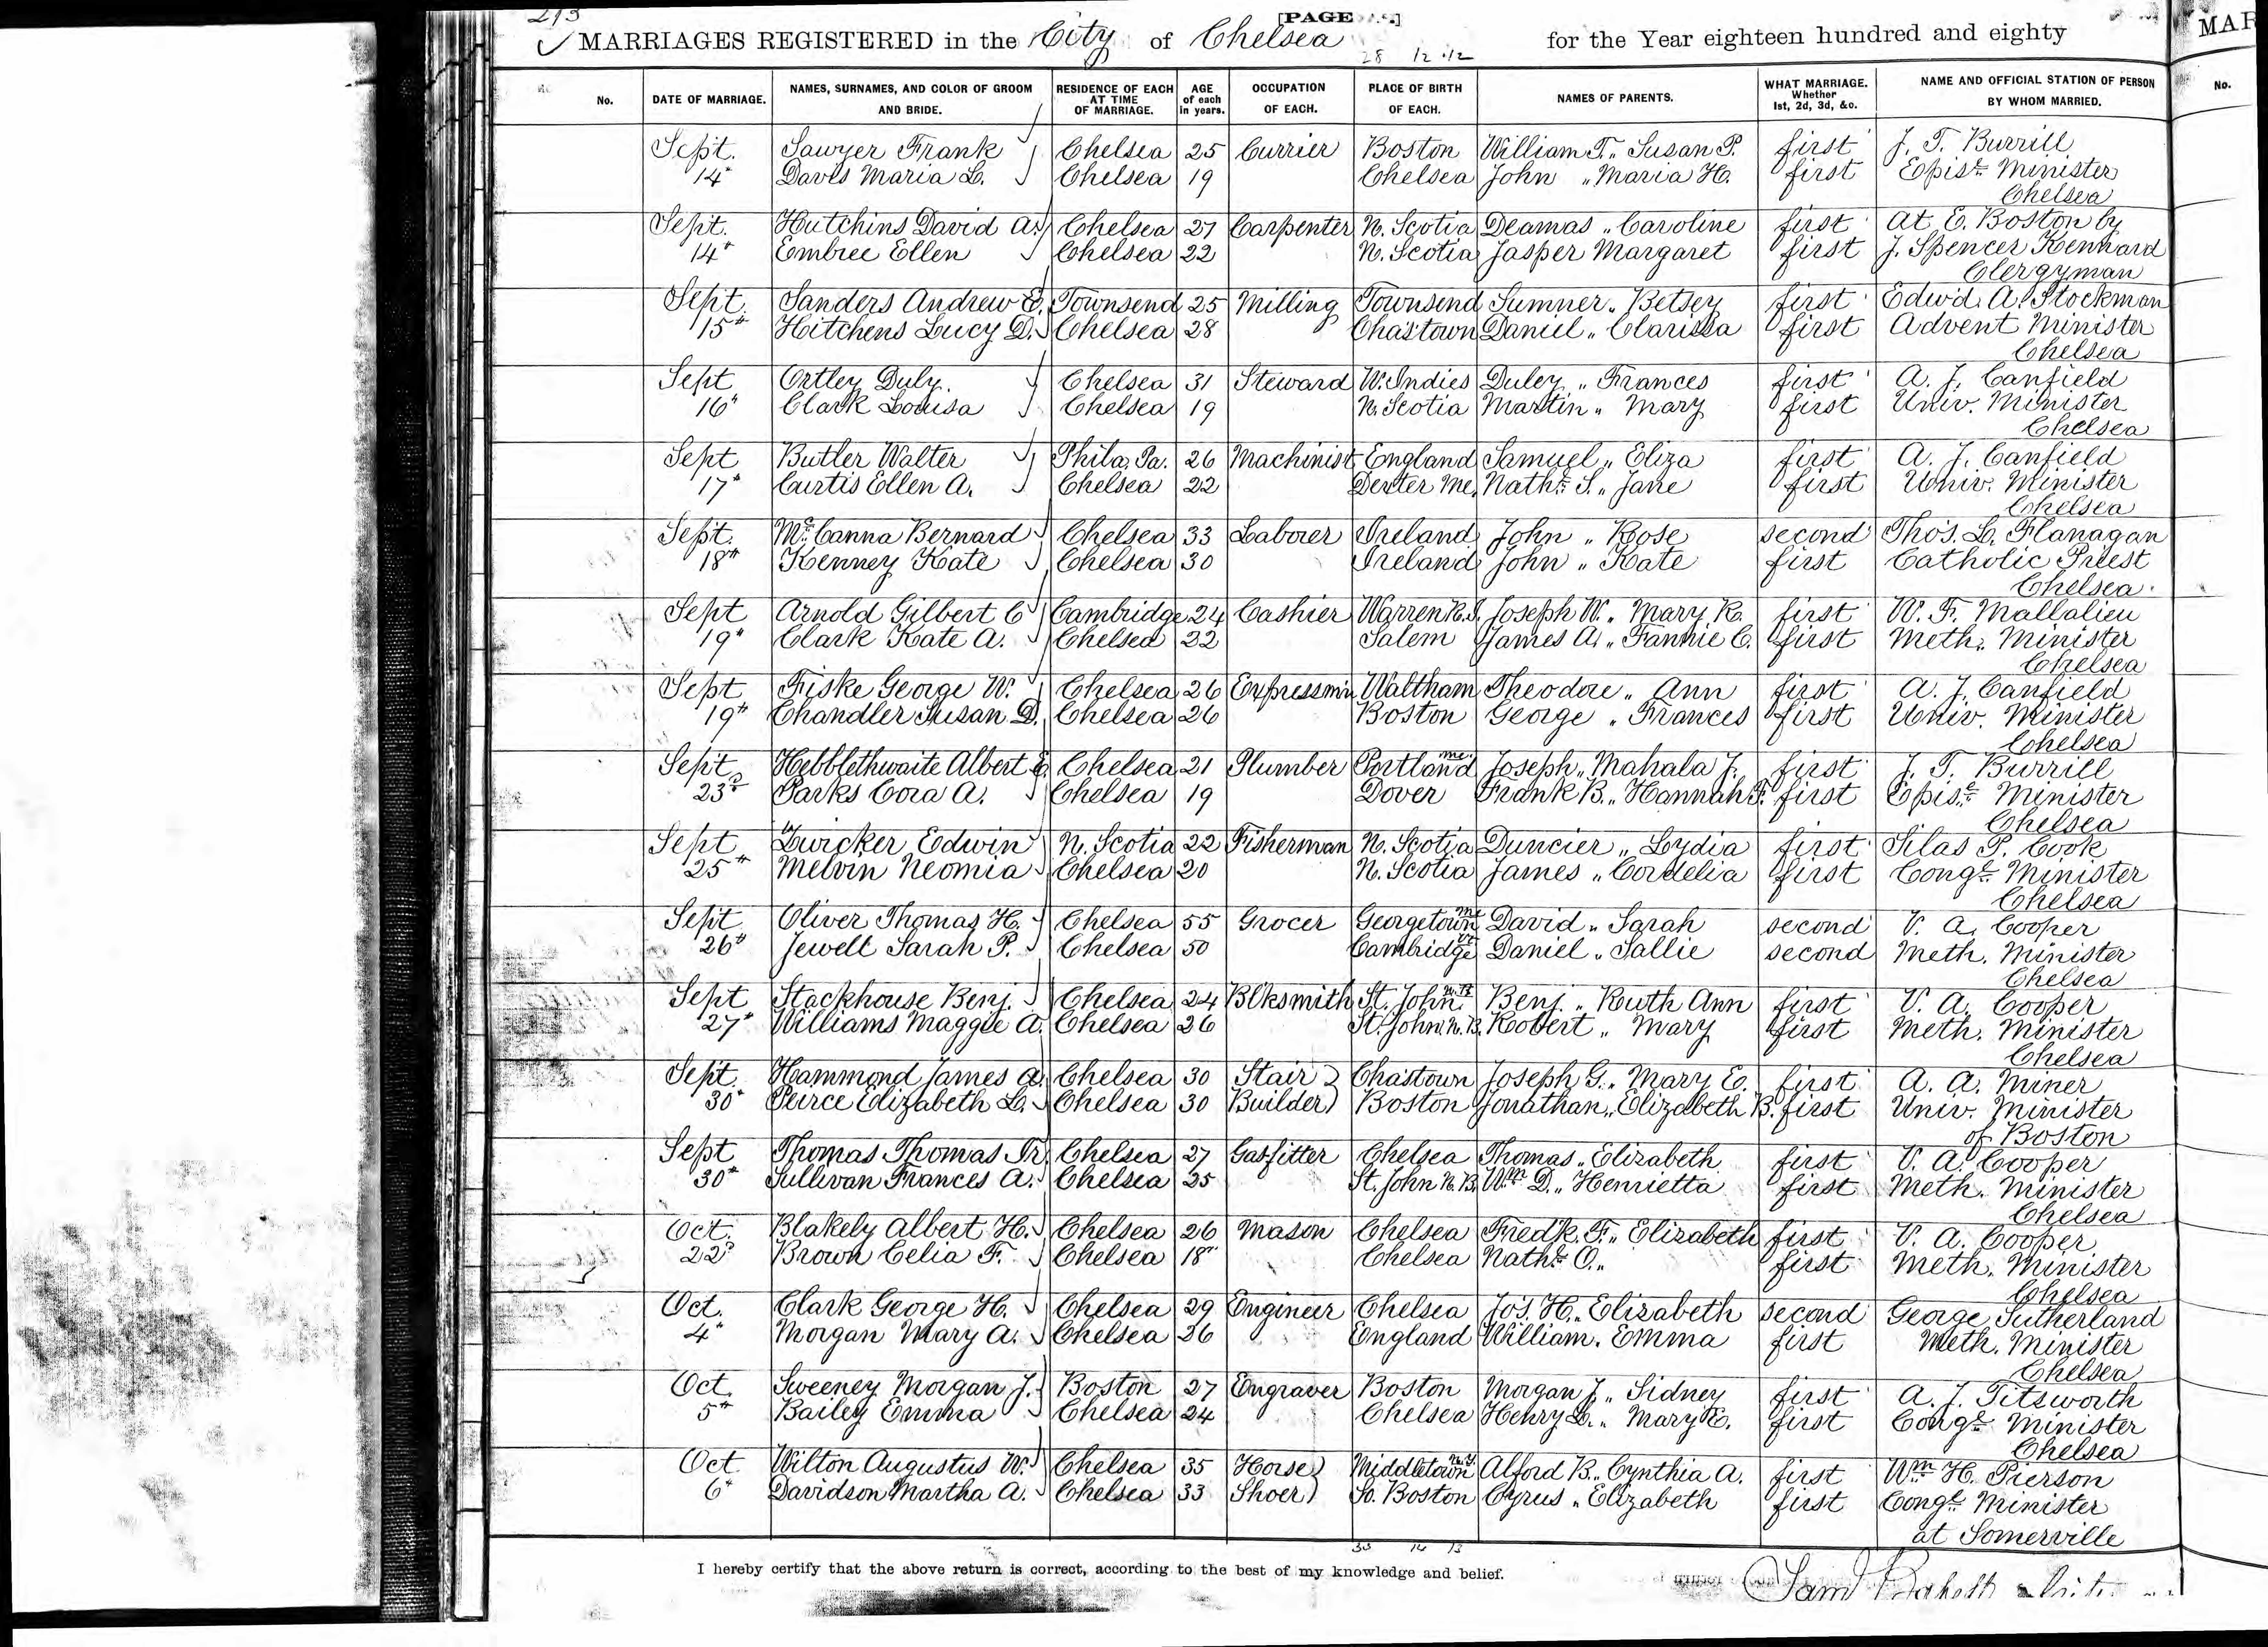 293
[PAGE
MARRIAGES REGISTERED in the City of Chelsea for the Year eighteen hundred and eighty
MAR
28 12 12
No. DATE OF MARRIAGE. NAMES, SURNAMES, AND COLOR OF GROOM AND BRIDE. RESIDENCE OF EACH AT TIME OF MARRIAGE. AGE of each in years. OCCUPATION OF EACH. PLACE OF BIRTH OF EACH. NAMES OF PARENTS. WHAT MARRIAGE. Whether 1st, 2d, 3d, &c. NAME AND OFFICIAL STATION OF PERSON BY WHOM MARRIED. No.
Sept. Sawyer Frank Chelsea 25 Currier Boston William T. " Susan P. first J. T. Burrill
14" Davis Maria L. Chelsea 19 Chelsea John " Maria H. first Episc. Minister
Chelsea
Sept. Hutchins David A. Chelsea 27 Carpenter N. Scotia Deamas " Caroline first at E. Boston by
14" Embree Ellen Chelsea 22 N. Scotia Jasper Margaret first J. Spencer Kennard
Clergyman
Sept. Sanders Andrew E. Townsend 25 Milling Townsend Sumner " Betsey first Edw'd. A. Stockman
15" Hitchens Lucy D. Chelsea 28 Cha's town Daniel " Clarissa first Advent Minister
Chelsea
Sept Ortley Duly. Chelsea 31 Steward W. Indies Duley " Frances first A. J. Canfield
16" Clark Louisa Chelsea 19 N. Scotia Martin " Mary first Univ. Minister
Chelsea
Sept Butler Walter Phila, Pa. 26 Machinist England Samuel " Eliza first A. J. Canfield
17" Curtis Ellen A. Chelsea 22 Dexter Me. Nathl. S. " Jane first Univ. Minister
Chelsea
Sept. McCanna Bernard Chelsea 33 Laborer Ireland John " Rose second Thos. L. Flanagan
18" Kenney Kate Chelsea 30 Ireland John " Kate first Catholic Priest
Chelsea
Sept Arnold Gilbert C Cambridge 24 Cashier Warren R.I. Joseph W. " Mary K. first W. F. Mallalieu
19" Clark Kate A. Chelsea 22 Salem James A. " Fannie C. first Meth. Minister
Chelsea
Sept Fiske George W. Chelsea 26 Expressm'n Waltham Theodore " Ann first A. J. Canfield
19" Chandler Susan D. Chelsea 26 Boston George " Frances first Univ. Minister
Chelsea
Sept. Hebblethwaite Albert E. Chelsea 21 Plumber Portland me Joseph " Mahala J. first J. T. Burrill
23d Parks Cora A. Chelsea 19 Dover Frank B. " Hannah F. first Episc. Minister
Chelsea
Sept. Zwicker Edwin N. Scotia 22 Fisherman N. Scotia Duncier " Lydia first Silas P. Cook
25" Melvin Neomia Chelsea 20 N. Scotia James " Cordelia first Congl. Minister
Chelsea
Sept Oliver Thomas H. Chelsea 55 Grocer Georgetown Me David " Sarah second V. A. Cooper
26" Jewell Sarah P. Chelsea 50 Cambridge Vt Daniel " Sallie second Meth. Minister
Chelsea
Sept Stackhouse Benj. Chelsea 24 Blksmith St. John N.B. Benj. " Ruth Ann first V. A. Cooper
27" Williams Maggie A. Chelsea 26 St. John N.B. Robert " Mary first Meth. Minister
Chelsea
Sept. Hammond James A. Chelsea 30 Stair Cha's town Joseph G. " Mary E. first A. A. Miner
30" Peirce Elizabeth L. Chelsea 30 Builder Boston Jonathan " Elizabeth B. first Univ. Minister
of Boston
Sept Thomas Thomas Jr. Chelsea 27 Gasfitter Chelsea Thomas " Elizabeth first V. A. Cooper
30" Sullivan Frances A. Chelsea 25 St. John N.B. Wm. D. " Henrietta first Meth. Minister
Chelsea
Oct. Blakely Albert H. Chelsea 26 Mason Chelsea Fred'k. F. " Elizabeth first V. A. Cooper
22d Brown Celia F. Chelsea 18 Chelsea Nathl. O. " first Meth. Minister
Chelsea
Oct. Clark George H. Chelsea 29 Engineer Chelsea Jos. H. " Elizabeth second George Sutherland
4" Morgan Mary A. Chelsea 26 England William. Emma first Meth. Minister
Chelsea
Oct. Sweeney Morgan J. Boston 27 Engraver Boston Morgan J. " Sidney first A. J. Titsworth
5" Bailey Emma Chelsea 24 Chelsea Henry L. " Mary E. first Congl. Minister
Chelsea
Oct Wilton Augustus W. Chelsea 35 Horse Middletown N.Y. Alford B. " Cynthia A. first Wm. H. Pierson
6" Davidson Martha A. Chelsea 33 Shoer So. Boston Cyrus " Elizabeth first Congl. Minister
at Somerville
I hereby certify that the above return is correct, according to the best of my knowledge and belief.